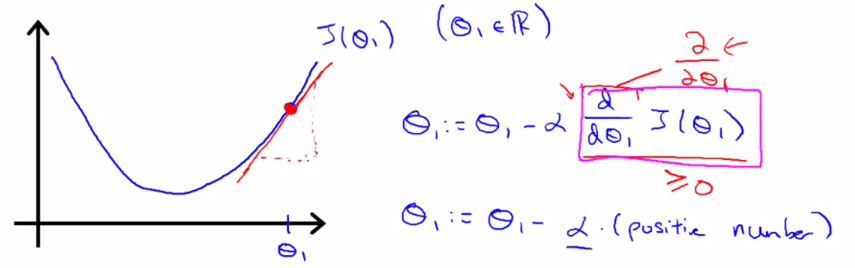 J(θ₁) (θ₁ ∈ ℝ)
∂/∂θ₁ ←
θ₁ := θ₁ - α d/dθ₁ J(θ₁)
≥0
θ₁ := θ₁ - α · (positive number)
θ₁